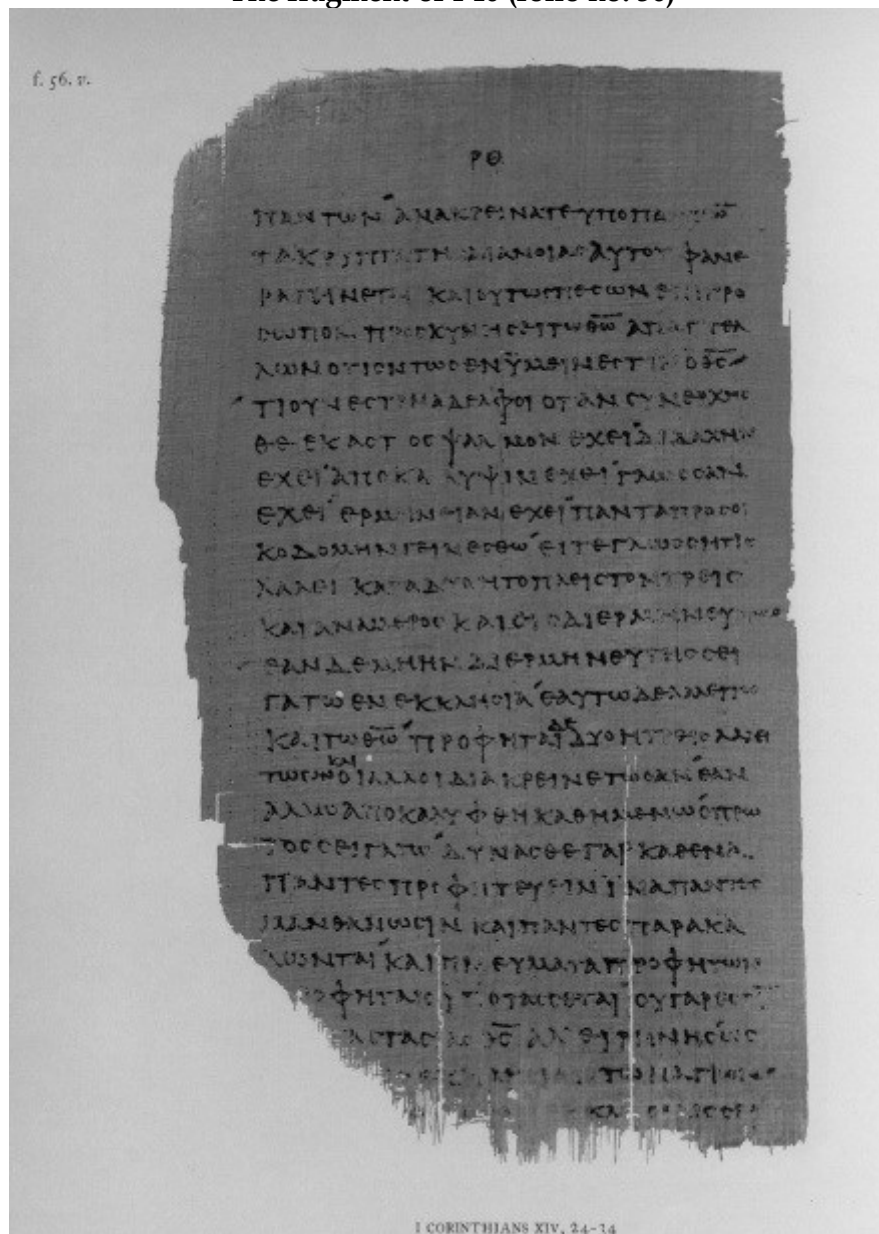 The fragment of P46 (folio no. 56)
f. 56. v.
ΡΘ
ΠΑΝΤΩΝ ΑΝΑΚΡΕΙΝΑΤΕ ΥΠΟ
ΤΑΚΡΥΠΤΑΤΗ ΔΙΑΝΟΙΑΣ ΑΥΤΟΥ ΦΑΝΕ
ΡΑΓΕΙΝΕΤΑΙ ΚΑΙΟΥΤΩΣΠΕΣΩΝ ΕΠΙΠΡΟ
ΣΩΠΟΝ ΠΡΟΣΚΥΝΗΣΕΙΤΩΘΩ ΑΠΑΓΓΕΛ
ΛΩΝΟΤΙΟΝΤΩΣΕΝΫΜΕΙΝΕΣΤΙΝΟΘΣ
ΤΙΟΥΝΕΣΤΙΝΑΔΕΛΦΟΙ ΟΤΑΝ ΣΥΝΕΡΧΗΣ
ΘΕ ΕΚΑΣΤΟΣ ΨΑΛΜΟΝ ΕΧΕΙ ΔΙΔΑΧΗΝ
ΕΧΕΙ ΑΠΟΚΑΛΥΨΙΝ ΕΧΕΙ ΓΛΩΣΣΑΝ
ΕΧΕΙ ΕΡΜΗΝΕΙΑΝ ΕΧΕΙ ΠΑΝΤΑΠΡΟΣΟΙ
ΚΟΔΟΜΗΝ ΓΕΙΝΕΣΘΩ ΕΙΤΕΓΛΩΣΣΗΤΙΣ
ΛΑΛΕΙ ΚΑΤΑΔΥΟΗΤΟΠΛΕΙΣΤΟΝΤΡΕΙΣ
ΚΑΙΑΝΑΜΕΡΟΣ ΚΑΙΕΙΣΔΙΕΡΜΗΝΕΥ
ΕΑΝΔΕΜΗΗΝ ΔΙΕΡΜΗΝΕΥΤΗΣ ΣΕΙ
ΓΑΤΩ ΕΝ ΕΚΚΛΗΣΙΑ ΕΑΥΤΩΔΕΛΑΛΕΙΤΩ
ΚΑΙΤΩΘΩ ΠΡΟΦΗΤΑΙ ΔΕ ΔΥΟΗΤΡΕΙΣΛΑΛΕΙ
ΤΩΣΑΝ ΚΑΙ ΟΙΑΛΛΟΙΔΙΑΚΡΕΙΝΕΤΩΣΑΝ ΕΑΝ
ΑΛΛΩΑΠΟΚΑΛΥΦΘΗ ΚΑΘΗΜΕΝΩ ΟΠΡΩ
ΤΟΣ ΣΕΙΓΑΤΩ ΔΥΝΑΣΘΕΓΑΡ ΚΑΘΕΝΑ
ΠΑΝΤΕΣΠΡΟΦΗΤΕΥΕΙΝ ΪΝΑΠΑΝΤΕΣ
ΜΑΝΘΑΝΩΣΙΝ ΚΑΙΠΑΝΤΕΣ ΠΑΡΑΚΑ
ΛΩΝΤΑΙ ΚΑΙΠΝΕΥΜΑΤΑΠΡΟΦΗΤΩΝ
ΟΦΗΤΑΙΣΥΠΟΤΑΣΣΕΤΑΙ ΟΥΓΑΡΕΣΤΙΝ
ΑΣΤΑΣΙΑΣΟΘΣ ΑΛΛΑ ΕΙΡΗΝΗΣ ΩΣ
I CORINTHIANS XIV, 24-34